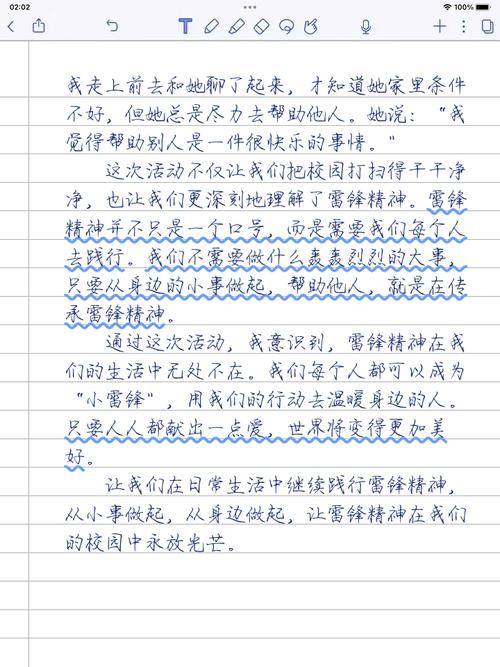 02:02
100%
我走上前去和她聊了起来，才知道她家里条件
不好，但她总是尽力去帮助他人。她说：“我
觉得帮助别人是一件很快乐的事情。”
这次活动不仅让我们把校园打扫得干干净
净，也让我们更深刻地理解了雷锋精神。雷锋
精神并不只是一个口号，而是需要我们每个人
去践行。我们不需要做什么轰轰烈烈的大事，
只要从身边的小事做起，帮助他人，就是在传
承雷锋精神。
通过这次活动，我意识到，雷锋精神在我
们的生活中无处不在。我们每个人都可以成为
“小雷锋”，用我们的行动去温暖身边的人。
只要人人都献出一点爱，世界将变得更加美
好。
让我们在日常生活中继续践行雷锋精神，
从小事做起，从身边做起，让雷锋精神在我们
的校园中永放光芒。